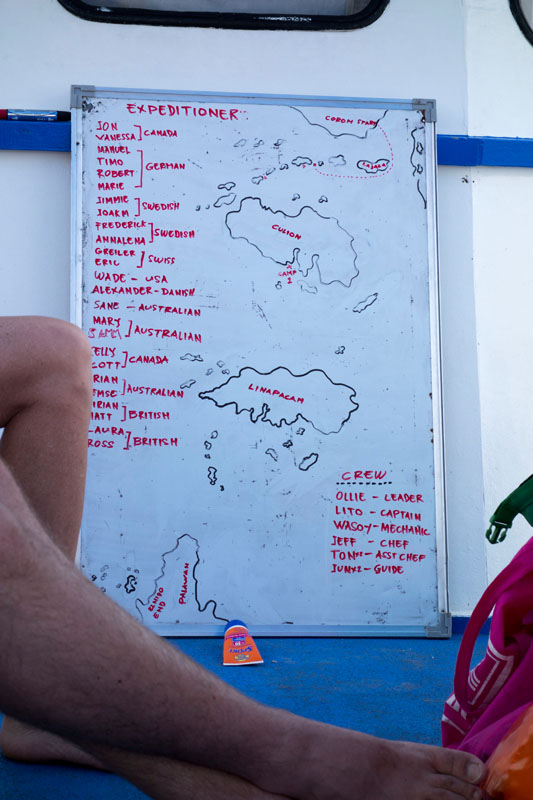 EXPEDITIONER
JON
VANESSA ] CANADA
MANUEL
TIMO
ROBERT
MARIE ] GERMAN
JIMMIE
JOAKM ] SWEDISH
FREDERICK
ANNALENA ] SWEDISH
GREILER
ERIC ] SWISS
WADE - USA
ALEXANDER - DANISH
SANE - AUSTRALIAN
MARY
] AUSTRALIAN
ELLY
COTT ] CANADA
RIAN
EMSE ] AUSTRALIAN
IRIAN
IATT ] BRITISH
LAURA
ROSS ] BRITISH
COROM START
CULION
CAMP
1
LINAPACAN
CREW
OLLIE - LEADER
LITO - CAPTAIN
WASOY - MECHANIC
JEFF - CHEF
- ASST CHEF
- GUIDE
PALAWAN
ELNIDO
END